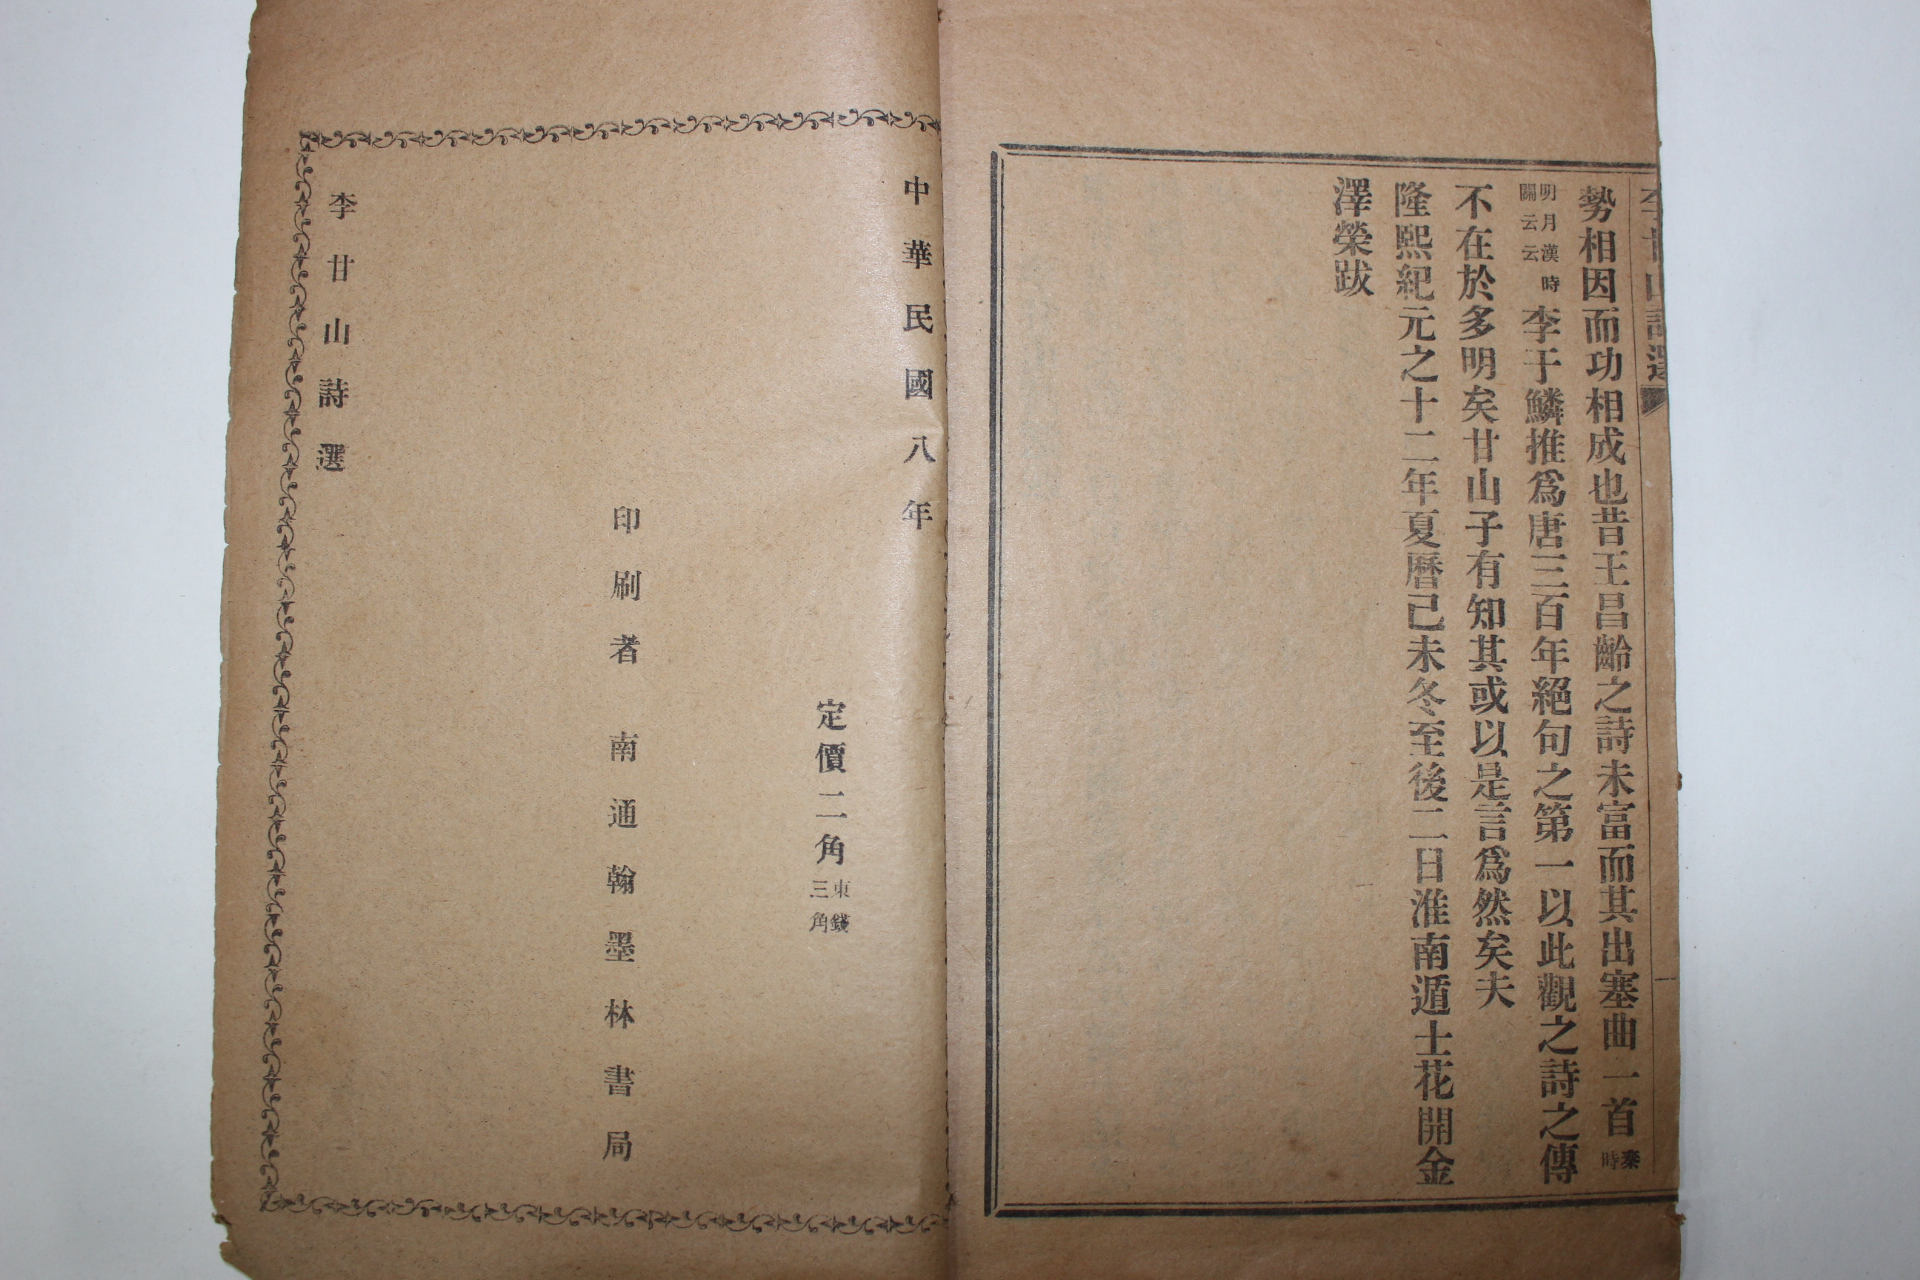 李甘山詩選
勢相因而功相成也昔王昌齡之詩未富而其出塞曲一首秦時
明月漢時關云云李于鱗推爲唐三百年絕句之第一以此觀之詩之傳
不在於多明矣甘山子有知其或以是言爲然矣夫
隆熙紀元之十二年夏曆己未冬至後二日淮南遁士花開金
澤榮跋
中華民國八年
定價二角東錢三角
印刷者 南通翰墨林書局
李甘山詩選